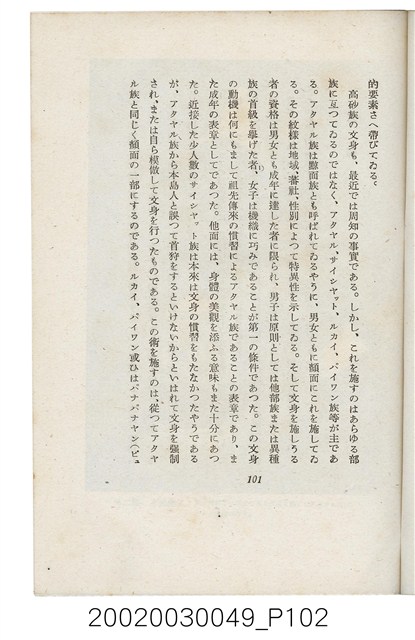 的要素さへ帶びてゐる。
高砂族の文身も、最近では周知の事實である。しかし、これを施すのはあらゆる部
族に亙つてゐるのではなく、アタヤル、サイシヤット、ルカイ、パイワン族等が主であ
る。アタヤル族は黥面族とも呼ばれてゐるやうに、男女ともに顏面にこれを施してゐ
る。その紋樣は地域、蕃社、性別によつて特異性を示してゐる。そして文身を施しうる
者の資格は男女とも成年に達した者に限られ、男子は原則としては他部族または異種
族の首級を擧げた者、女子は機織に巧みであることが第一の條件であつた。この文身
の動機は何にもまして祖先傳來の慣習によるアタヤル族であることの表章であり、ま
た成年の表章としてであつた。他面には、身體の美觀を添ふる意味もまた十分にあつ
た。近接した少人數のサイシヤット族は本來は文身の慣習をもたなかつたやうである
が、アタヤル族から本島人と誤つて首狩をするといけないからといはれて文身を强制
され、または自ら模倣して文身を行つたものである。この術を施すのは、從つてアタヤ
ル族と同じく顏面の一部にするのである。ルカイ、パイワン或ひはパナパナヤン（ピュ
101
20020030049_P102